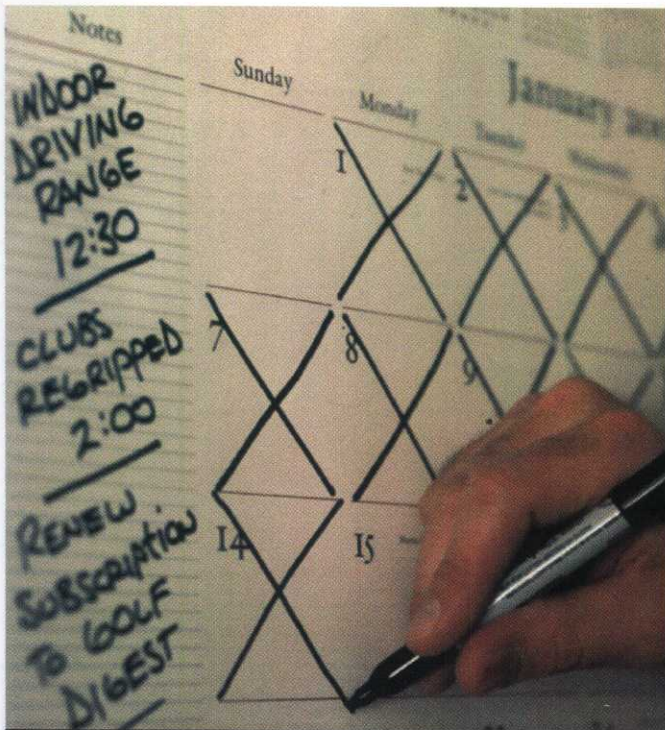 Notes
INDOOR
DRIVING
RANGE
12:30
CLUBS
REGRIPPED
2:00
RENEW
SUBSCRIPTION
TO GOLF
DIGEST
January
Sunday Monday Tuesday Wednesday
1 2 3
7 8 9
14 15